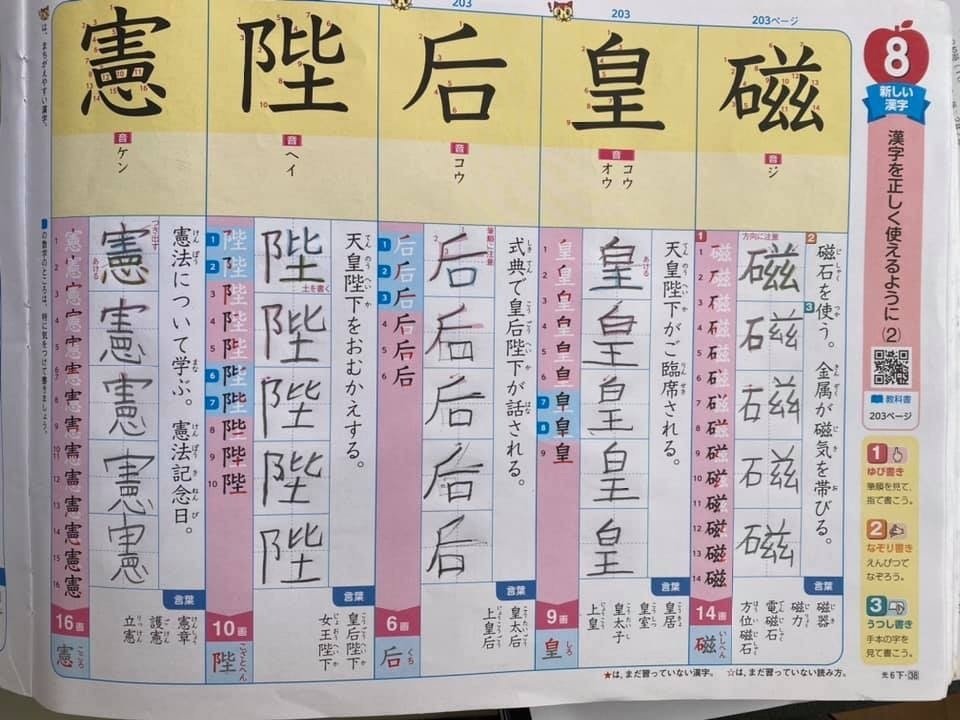 8
新しい漢字
漢字を正しく使えるように(2)
教科書
203ページ
1
ゆび書き
筆順を見て、
指で書こう。
2
なぞり書き
えんぴつで
なぞろう。
3
うつし書き
手本の字を
見て書こう。
203ページ
磁
音
ジ
方向に注意
磁石を使う。 金属が磁気を帯びる。
磁
磁
磁
磁
磁
言葉
磁器
磁力
電磁石
方位磁石
14画
磁
いしへん
203
皇
音
コウ
オウ
あける
天皇陛下がご臨席される。
皇
皇
皇
皇
皇
言葉
皇居
皇室
皇太子
上皇
9画
皇
しろ
203
后
音
コウ
筆順に注意
式典で皇后陛下が話される。
后
后
后
后
后
言葉
皇太后
上皇后
6画
后
くち
陛
音
ヘイ
土を書く
天皇陛下をおむかえする。
陛
陛
陛
陛
陛
言葉
皇后陛下
女王陛下
10画
陛
こざとへん
憲
音
ケン
つき出す
あける
憲法について学ぶ。 憲法記念日。
憲
憲
憲
憲
憲
言葉
憲章
護憲
立憲
16画
憲
こころ
は、まちがえやすい漢字。
の数字のところは、特に気をつけて書きましょう。
★は、まだ習っていない漢字。 ☆は、まだ習っていない読み方。
光6下・38